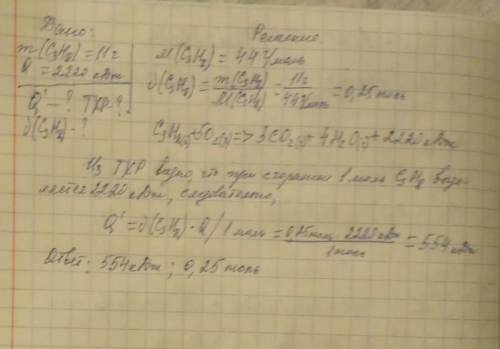 Дано:
Решение
m(C₃H₈)=11г
Q=2220 кДж
Q' - ? ТХР-?
υ(C₃H₈)-?
M(C₃H₈)=44 г/моль
υ(C₃H₈)=m(C₃H₈)/M(C₃H₈)=11г/44 г/моль=0,25 моль
C₃H₈(г)+5O₂(г)=>3CO₂(г)+4H₂O(г)+2220 кДж
Из ТХР видно, что при сгорании 1 моль C₃H₈ выде-
ляется 2220 кДж, следовательно,
Q'=υ(C₃H₈)·Q/1 моль=0,25 моль·2220 кДж/1 моль=554 кДж
Ответ: 554 кДж; 0,25 моль